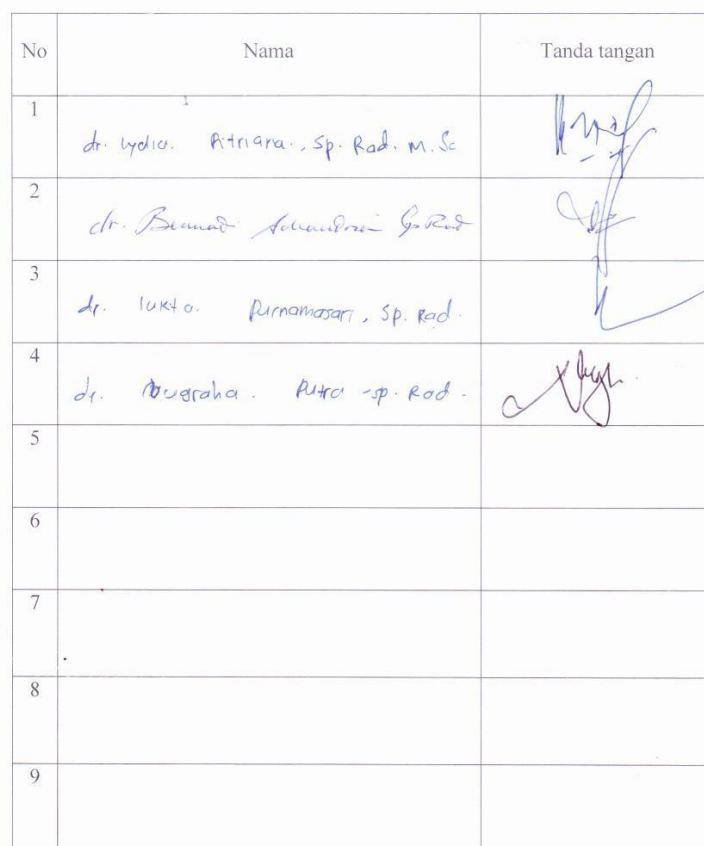 No Nama Tanda tangan
1 dr. Lydia. Pitriana., Sp. Rad. M. Sc
2 dr. Sp Rad
3 dr. lukta. Purnamasari, Sp. Rad.
4 dr. Nugraha. Putra -sp. Rad.
5
6
7
8
9